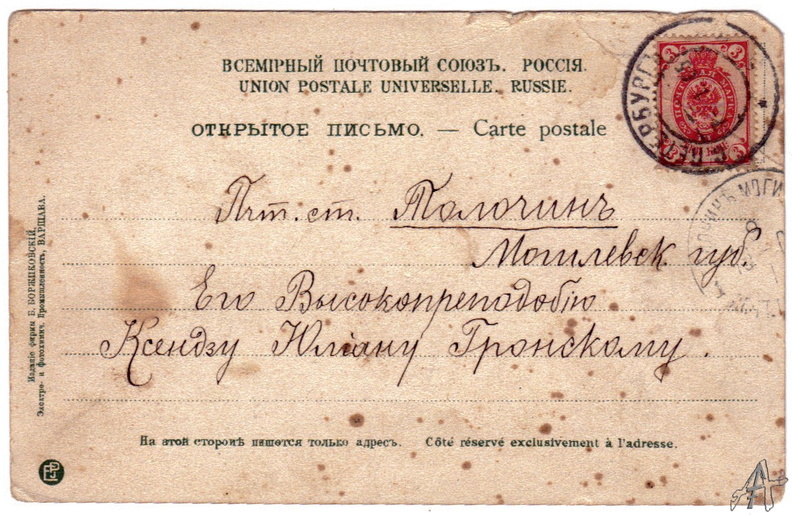 ВСЕМІРНЫЙ ПОЧТОВЫЙ СОЮЗЪ. РОССІЯ.
UNION POSTALE UNIVERSELLE. RUSSIE.
ОТКРЫТОЕ ПИСЬМО. — Carte postale
3 3
ПОЧТОВАЯ МАРКА
3 3
С.ПЕТЕРБУРГЪ
Пчт. ст. Толочинъ
Могилевск. губ.
Его Высокопреподобію
Ксендзу Юліану Гронскому.
На этой сторонѣ пишется только адресъ. Côté réservé exclusivement à l'adresse.
Изданіе фирмы Б. ВОРЖИКОВСКІЙ.
Электро- и фотохимич. Промышленность, ВАРШАВА.